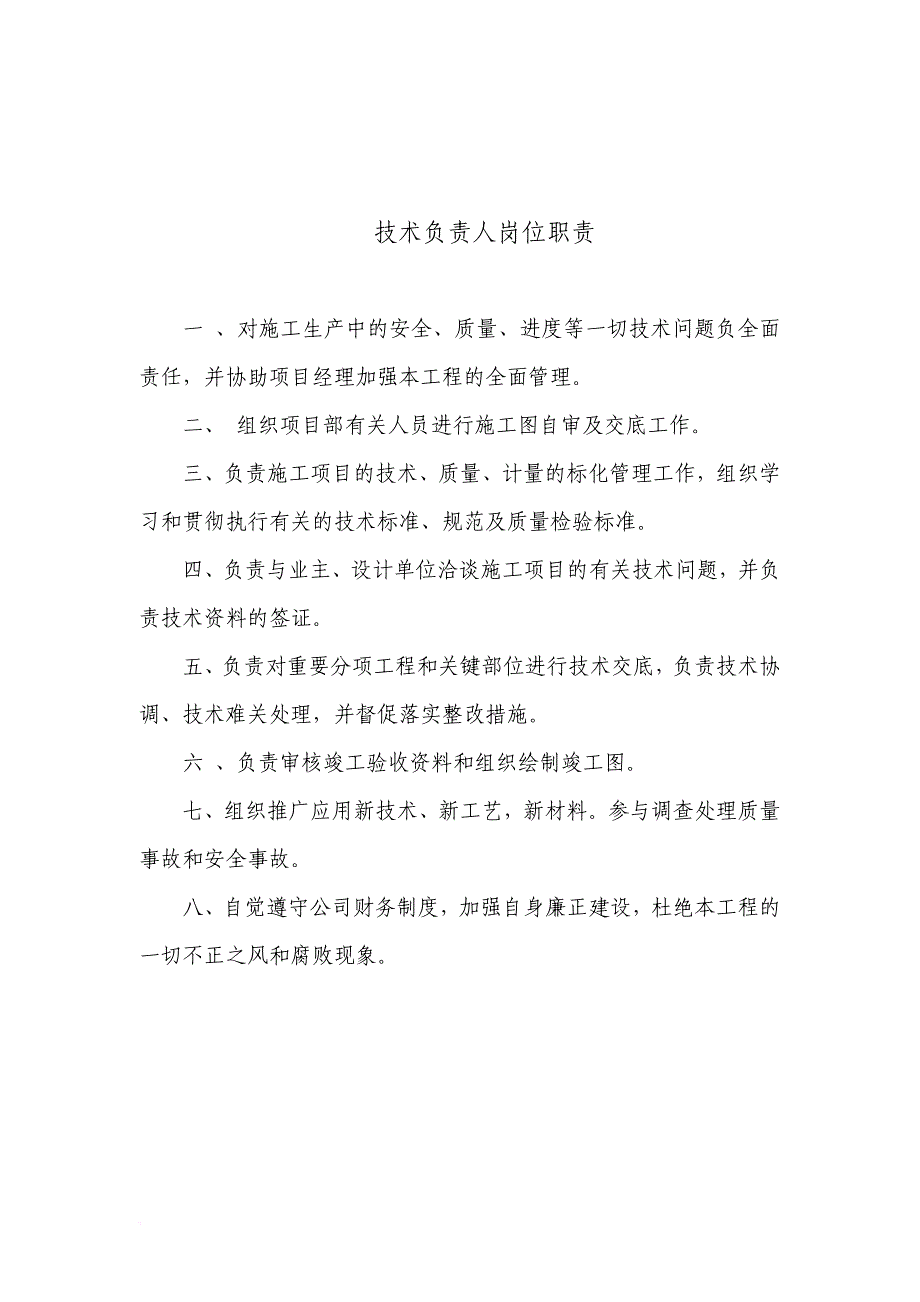 技术负责人岗位职责
一 、对施工生产中的安全、质量、进度等一切技术问题负全面
责任，并协助项目经理加强本工程的全面管理。
二、 组织项目部有关人员进行施工图自审及交底工作。
三、负责施工项目的技术、质量、计量的标化管理工作，组织学
习和贯彻执行有关的技术标准、规范及质量检验标准。
四、负责与业主、设计单位洽谈施工项目的有关技术问题，并负
责技术资料的签证。
五、负责对重要分项工程和关键部位进行技术交底，负责技术协
调、技术难关处理，并督促落实整改措施。
六 、负责审核竣工验收资料和组织绘制竣工图。
七、组织推广应用新技术、新工艺，新材料。参与调查处理质量
事故和安全事故。
八、自觉遵守公司财务制度，加强自身廉正建设，杜绝本工程的
一切不正之风和腐败现象。